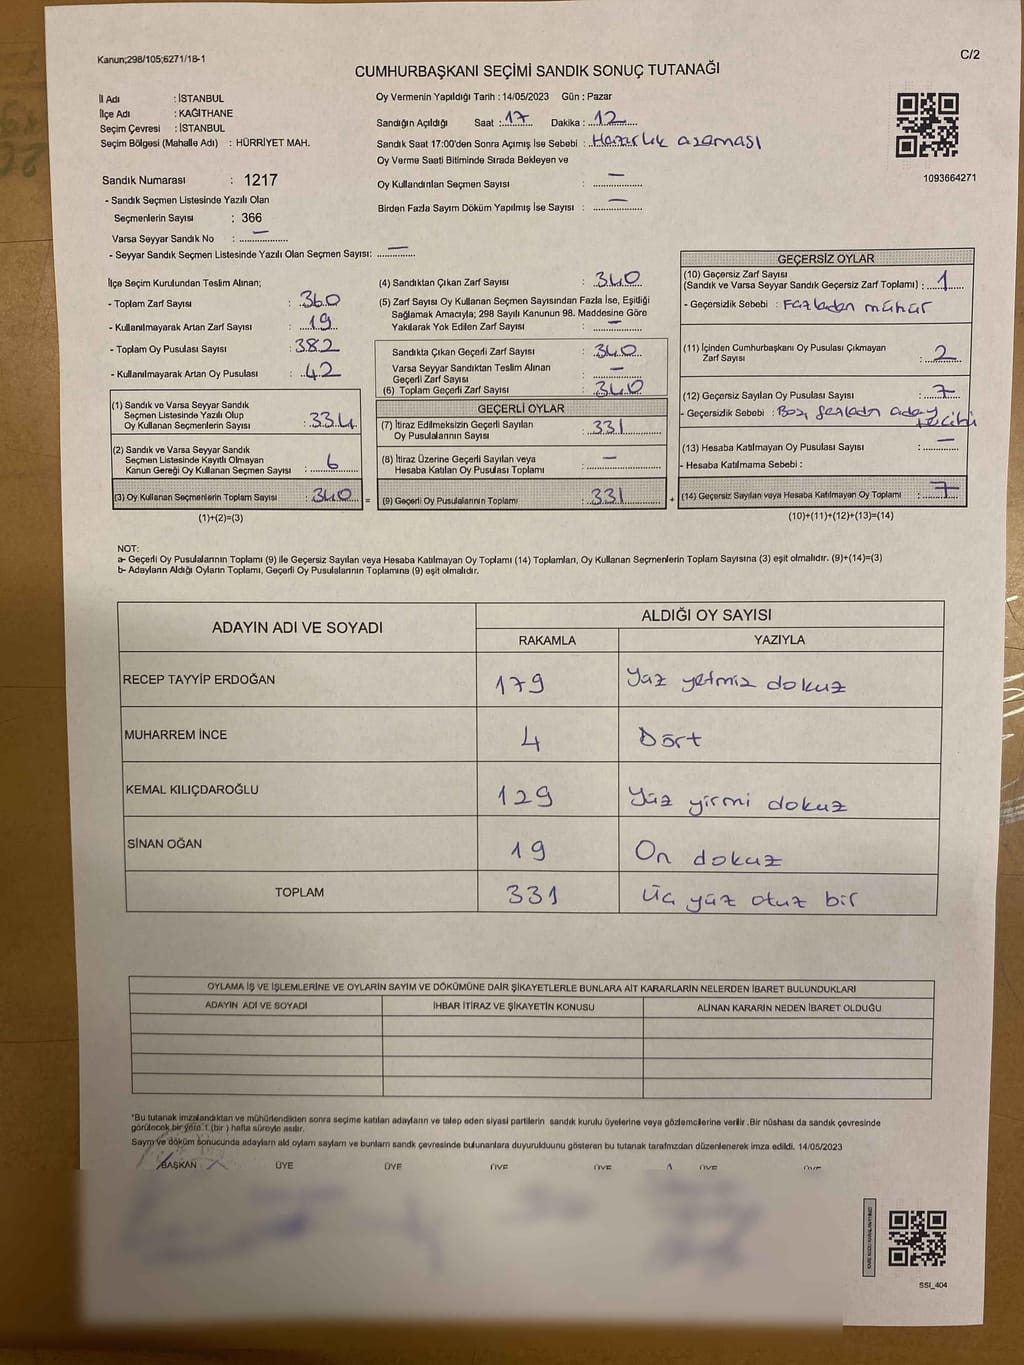 Kanun;298/105;6271/18-1
C/2
CUMHURBAŞKANI SEÇİMİ SANDIK SONUÇ TUTANAĞI
İl Adı : İSTANBUL
İlçe Adı : KAĞITHANE
Seçim Çevresi : İSTANBUL
Seçim Bölgesi (Mahalle Adı) : HÜRRİYET MAH.
Oy Vermenin Yapıldığı Tarih : 14/05/2023 Gün : Pazar
Sandığın Açıldığı Saat : 17 Dakika : 12
Sandık Saat 17:00'den Sonra Açımış İse Sebebi : Hazırlık aşaması
Oy Verme Saati Bitiminde Sırada Bekleyen ve
Oy Kullandırılan Seçmen Sayısı : —
Birden Fazla Sayım Döküm Yapılmış İse Sayısı : —
1093664271
Sandık Numarası : 1217
- Sandık Seçmen Listesinde Yazılı Olan
Seçmenlerin Sayısı : 366
Varsa Seyyar Sandık No : —
- Seyyar Sandık Seçmen Listesinde Yazılı Olan Seçmen Sayısı: —
İlçe Seçim Kurulundan Teslim Alınan;
- Toplam Zarf Sayısı : 360
- Kullanılmayarak Artan Zarf Sayısı : 19
- Toplam Oy Pusulası Sayısı : 382
- Kullanılmayarak Artan Oy Pusulası : 42
(1) Sandık ve Varsa Seyyar Sandık
Seçmen Listesinde Yazılı Olup
Oy Kullanan Seçmenlerin Sayısı : 334
(2) Sandık ve Varsa Seyyar Sandık
Seçmen Listesinde Kayıtlı Olmayan
Kanun Gereği Oy Kullanan Seçmen Sayısı : 6
(3) Oy Kullanan Seçmenlerin Toplam Sayısı : 340 =
(1)+(2)=(3)
(4) Sandıktan Çıkan Zarf Sayısı : 340
(5) Zarf Sayısı Oy Kullanan Seçmen Sayısından Fazla İse, Eşitliği
Sağlamak Amacıyla; 298 Sayılı Kanunun 98. Maddesine Göre
Yakılarak Yok Edilen Zarf Sayısı : —
Sandıkta Çıkan Geçerli Zarf Sayısı : 340
Varsa Seyyar Sandıktan Teslim Alınan
Geçerli Zarf Sayısı : —
(6) Toplam Geçerli Zarf Sayısı : 340
GEÇERLİ OYLAR
(7) İtiraz Edilmeksizin Geçerli Sayılan
Oy Pusulalarının Sayısı : 331
(8) İtiraz Üzerine Geçerli Sayılan veya
Hesaba Katılan Oy Pusulası Toplamı : —
(9) Geçerli Oy Pusulalarının Toplamı : 331 +
GEÇERSİZ OYLAR
(10) Geçersiz Zarf Sayısı
(Sandık ve Varsa Seyyar Sandık Geçersiz Zarf Toplamı) : 1
- Geçersizlik Sebebi : Fazladan mühür
(11) İçinden Cumhurbaşkanı Oy Pusulası Çıkmayan
Zarf Sayısı : 2
(12) Geçersiz Sayılan Oy Pusulası Sayısı : 7
- Geçersizlik Sebebi : Boş,
(13) Hesaba Katılmayan Oy Pusulası Sayısı : —
- Hesaba Katılmama Sebebi :
(14) Geçersiz Sayılan veya Hesaba Katılmayan Oy Toplamı : 7
(10)+(11)+(12)+(13)=(14)
NOT:
a- Geçerli Oy Pusulalarının Toplamı (9) ile Geçersiz Sayılan veya Hesaba Katılmayan Oy Toplamı (14) Toplamları, Oy Kullanan Seçmenlerin Toplam Sayısına (3) eşit olmalıdır. (9)+(14)=(3)
b- Adayların Aldığı Oyların Toplamı, Geçerli Oy Pusulalarının Toplamına (9) eşit olmalıdır.
ADAYIN ADI VE SOYADI
ALDIĞI OY SAYISI
RAKAMLA YAZIYLA
RECEP TAYYİP ERDOĞAN 179 Yüz yetmiş dokuz
MUHARREM İNCE 4 Dört
KEMAL KILIÇDAROĞLU 129 Yüz yirmi dokuz
SİNAN OĞAN 19 On dokuz
TOPLAM 331 Üç yüz otuz bir
OYLAMA İŞ VE İŞLEMLERİNE VE OYLARIN SAYIM VE DÖKÜMÜNE DAİR ŞİKAYETLERLE BUNLARA AİT KARARLARIN NELERDEN İBARET BULUNDUKLARI
ADAYIN ADI VE SOYADI İHBAR İTİRAZ VE ŞİKAYETİN KONUSU ALINAN KARARIN NEDEN İBARET OLDUĞU
*Bu tutanak imzalandıktan ve mühürlendikten sonra seçime katılan adayların ve talep eden siyasi partilerin sandık kurulu üyelerine veya gözlemcilerine verilir .Bir nüshası da sandık çevresinde
görülecek bir yere 1 (bir ) hafta süreyle asılır.
Sayım ve döküm sonucunda adayların aldı oyların sayıların ve bunların sandık çevresinde bulunanlara duyurulduunu gösteren bu tutanak tarafımızdan düzenlenerek imza edildi. 14/05/2023
BAŞKAN ÜYE ÜYE ÜYE ÜYE ÜYE ÜYE
SSI_404